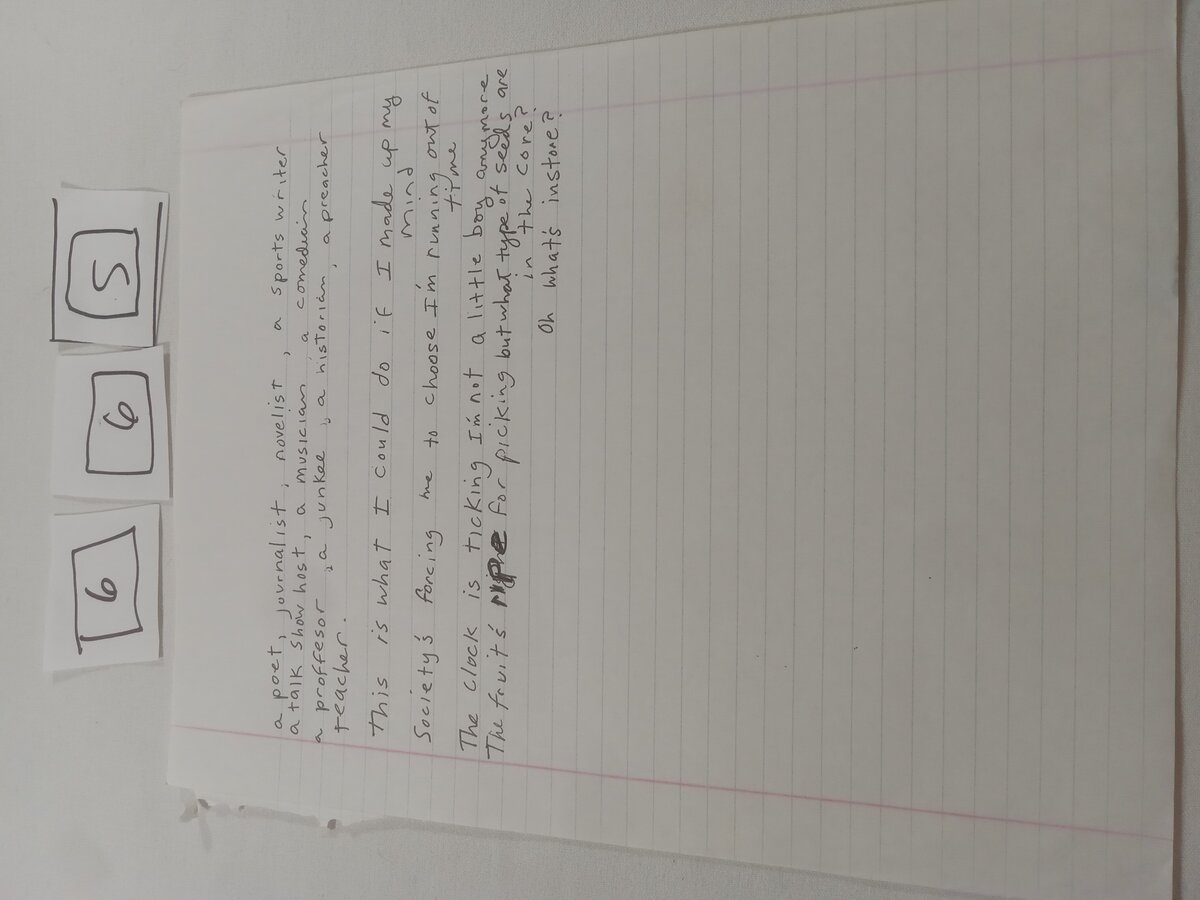 6 6 5
a poet, journalist, novelist, a sports writer
a talk show host, a musician, a comedian
a proffesor, a junkee, a historian, a preacher
teacher.
This is what I could do if I made up my
mind
Society's forcing me to choose I'm running out of
time
The clock is ticking I'm not a little boy anymore
The fruit's ripe for picking but what type of seeds are
in the core?
Oh what's instore?